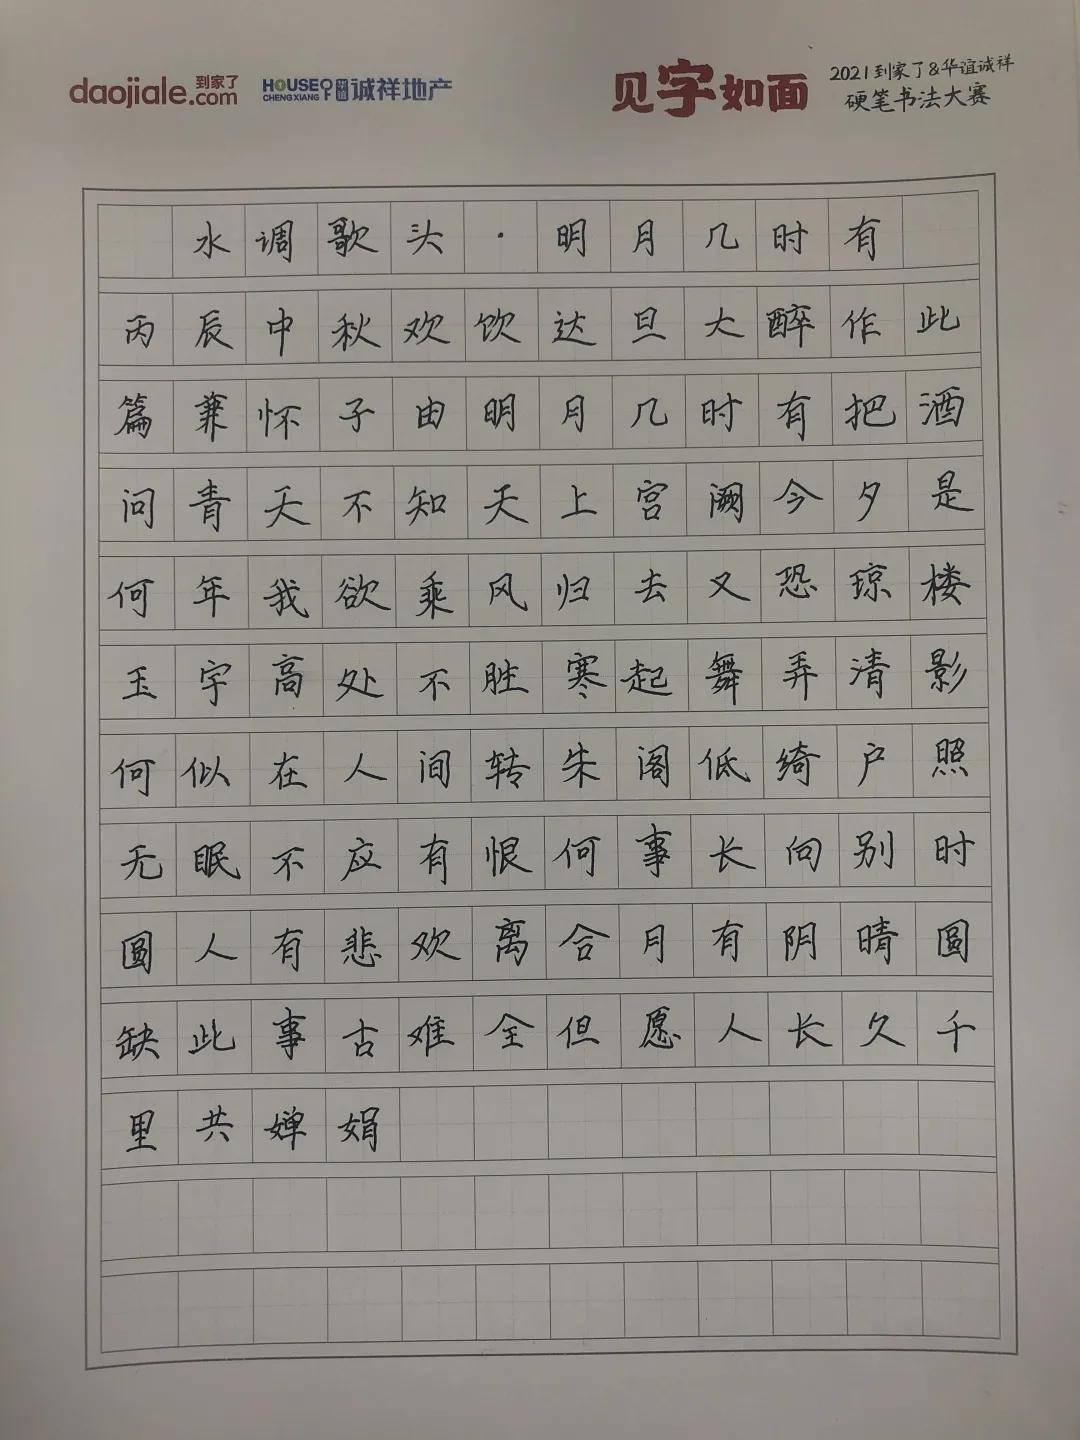 daojiale.com 到家了 HOUSE CHENGXIANG 华谊 诚祥地产
见字如面 2021到家了&华谊诚祥
硬笔书法大赛
水调歌头·明月几时有
丙辰中秋欢饮达旦大醉作此
篇兼怀子由明月几时有把酒
问青天不知天上宫阙今夕是
何年我欲乘风归去又恐琼楼
玉宇高处不胜寒起舞弄清影
何似在人间转朱阁低绮户照
无眠不应有恨何事长向别时
圆人有悲欢离合月有阴晴圆
缺此事古难全但愿人长久千
里共婵娟